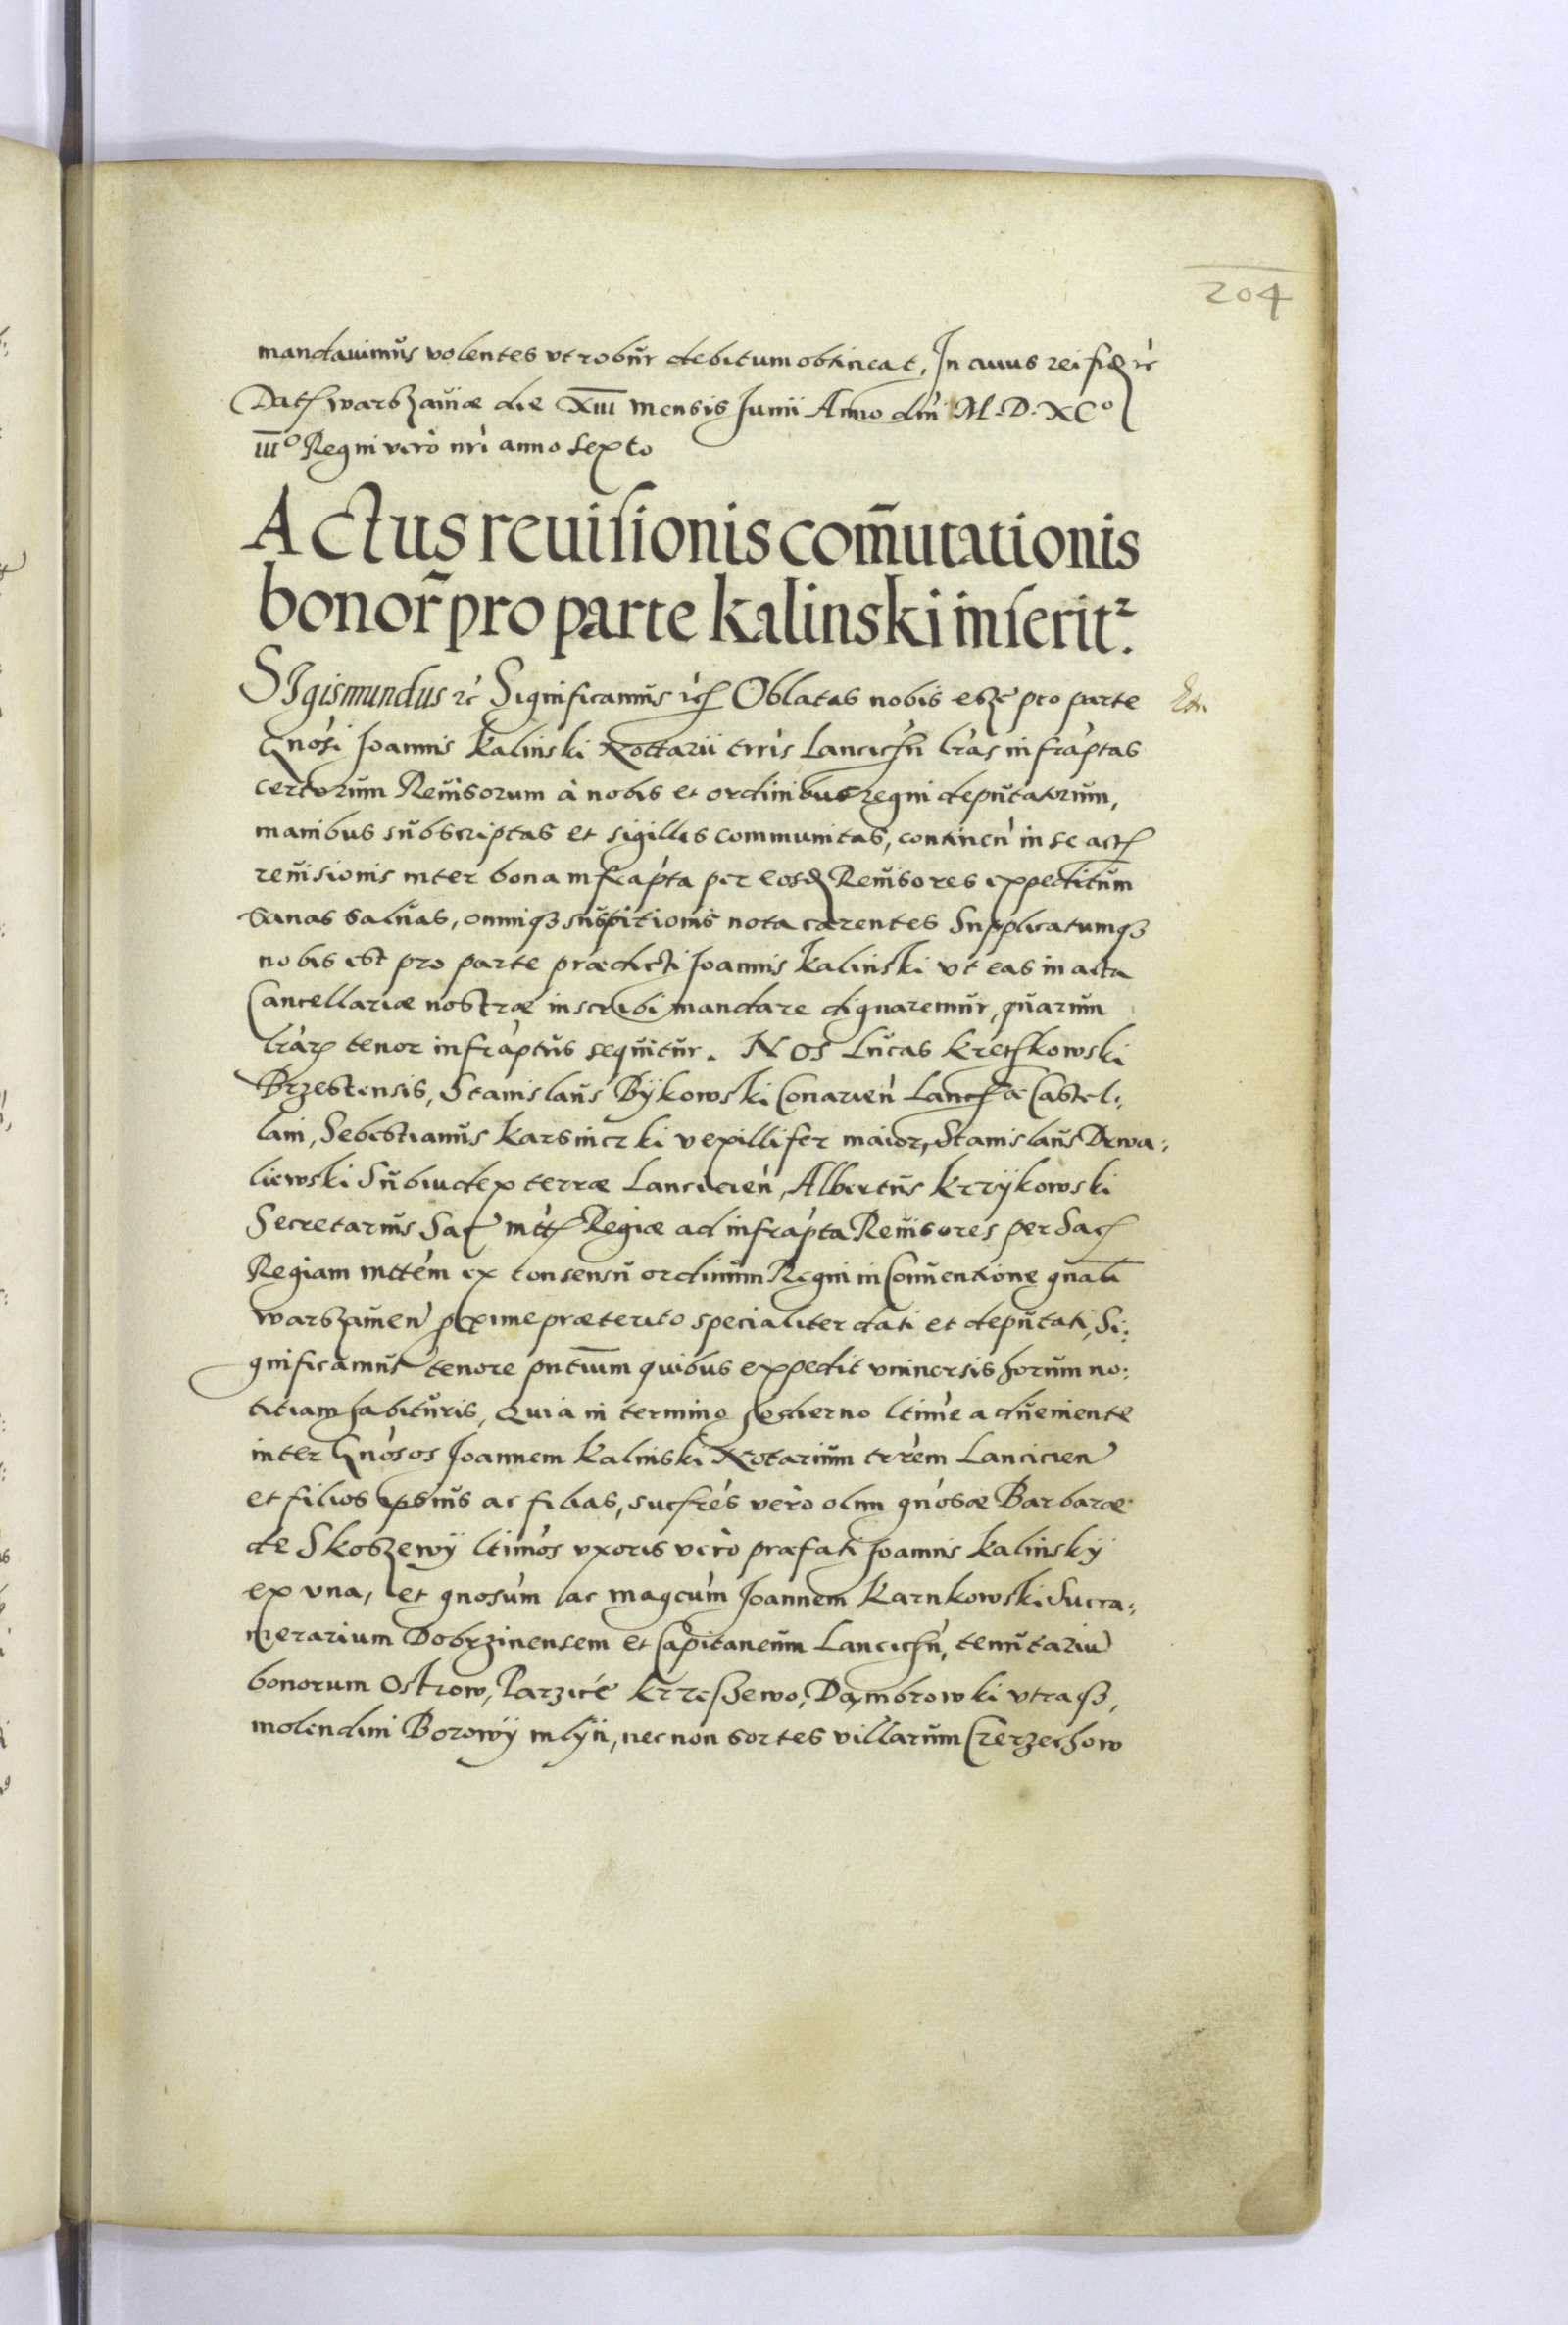 204
mandauimus volentes vt robur debitum obtineat, In cuius rei fidē rc̄
Dat̄ Warszauiæ die XIII mensis Junii Anno dn̄i M. D. XCº
IIIº Regni vero nr̄i anno sexto
Actus reuisionis com̄utationis
bonor̄ pro parte kalinski inseritᷣ.
SIgismundus rc̄ Significamus rc̄ Oblatas nobis esse pro parte
Gnōsi Joannis Kalinski Nottarii trr̄is Lancicn̄ lr̄as infrāptas
certorum Reuisorum à nobis et ordinibus regni deputatorum,
manibus subscriptas et sigillis communitas, continen̄ in se act̄
reuisionis inter bona infrāpta per eosd̄ Reuisores expeditum
Sanas saluas, omniq3 suspitionis nota carentes Supplicatumq3
nobis est pro parte prædicti Joannis Kalinski vt eas in acta
Cancellariæ nostræ inscribi mandare dignaremur, quarum
lr̄ar̄ tenor infrāptus sequitur. Nos Lucas Kretskowski
Brzestensis, Stanislaus Bÿkowski Conarien̄ Lanc̄ æ Castel:
lani, Sebestianus Karsniczki vexillifer maior, Stanislaus Drwa:
liewski Subiudex terræ Lancicien̄, Albertus Krzÿkowski
Secretarius Sac̄ mtt̄ Regiæ ad infrāpta Reuisores per Sac̄
Regiam mttēm ex consensu ordinum Regni in Conuentione gn̄ali
Warszauien̄ pxime præterito specialiter dati et deputati, Si:
gnificamus tenore pn̄tium quibus expedit vniuersis horum no:
titiam habituris, Quia in termino hodierno ltimē adueniente
inter Gnōsos Joannem Kalinski Notarium trr̄em Lancicien̄
et filios ipsius ac filias, sucfrēs vero olim gn̄osæ Barbaræ
de Skoszewÿ ltimōs vxoris vero præfati Joannis Kalinskÿ
ex vna, et gnosūm ac magcūm Joannem Karnkowski Succa:
merarium Dobrzinensem et Capitaneum Lancicn̄, tenutariū
bonorum Ostrow, Parzice Krzeszewo, Dambrowki vtraq3,
molendini Borowÿ mlÿn, nec non sortes villarum Czerzechow